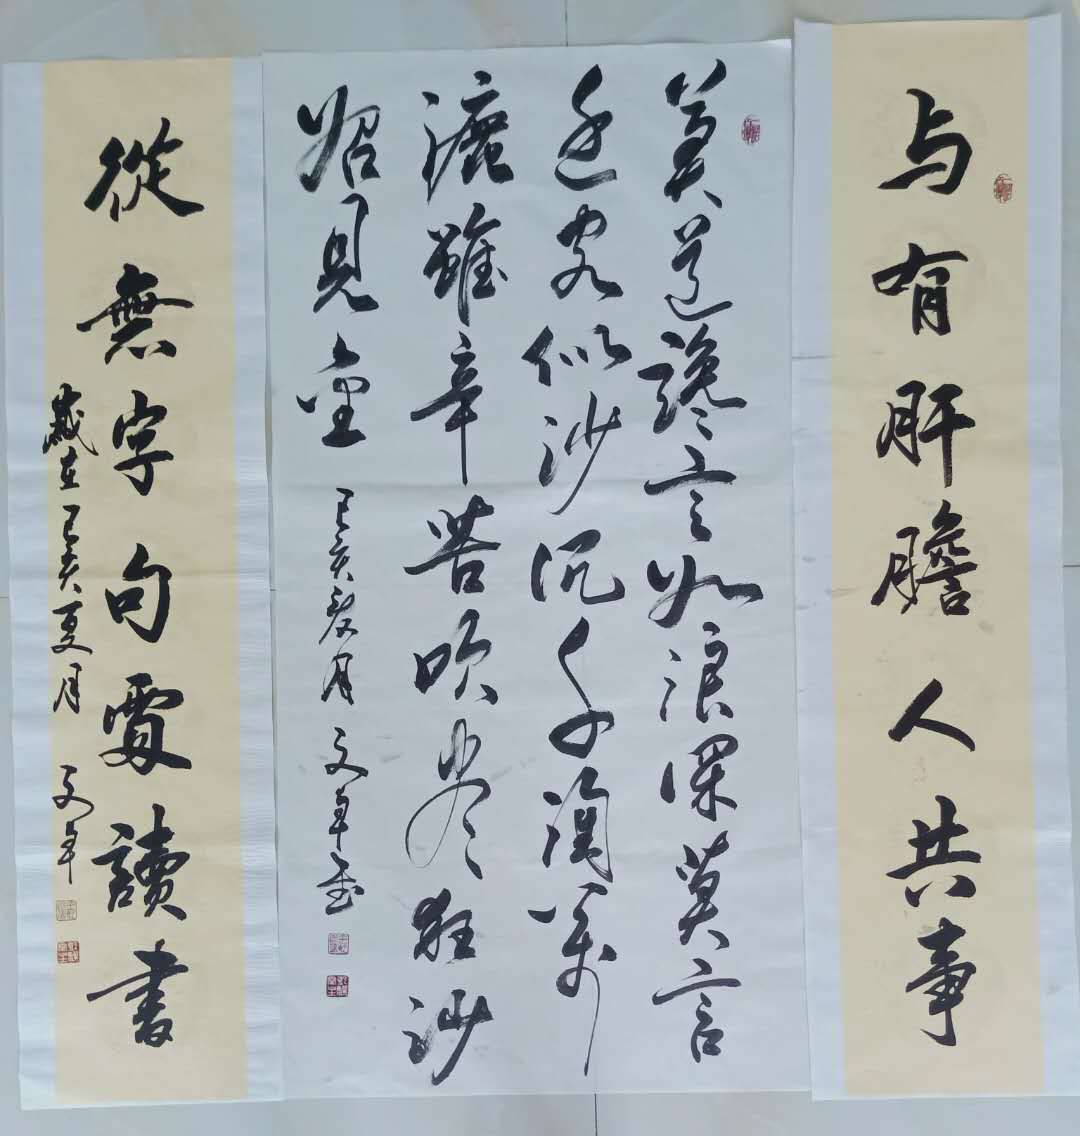 与有肝膽人共事
莫道讒言如浪深莫言
迁客似沙沉千淘万
漉雖辛苦吹尽狂沙
始見金
己亥夏月 文
從無字句處讀書
歲在己亥夏月 文